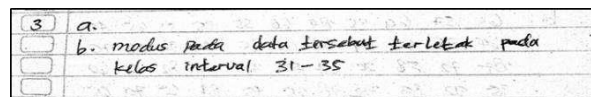 3 a.
b. modus pada data tersebut terletak pada
kelas interval 31-35